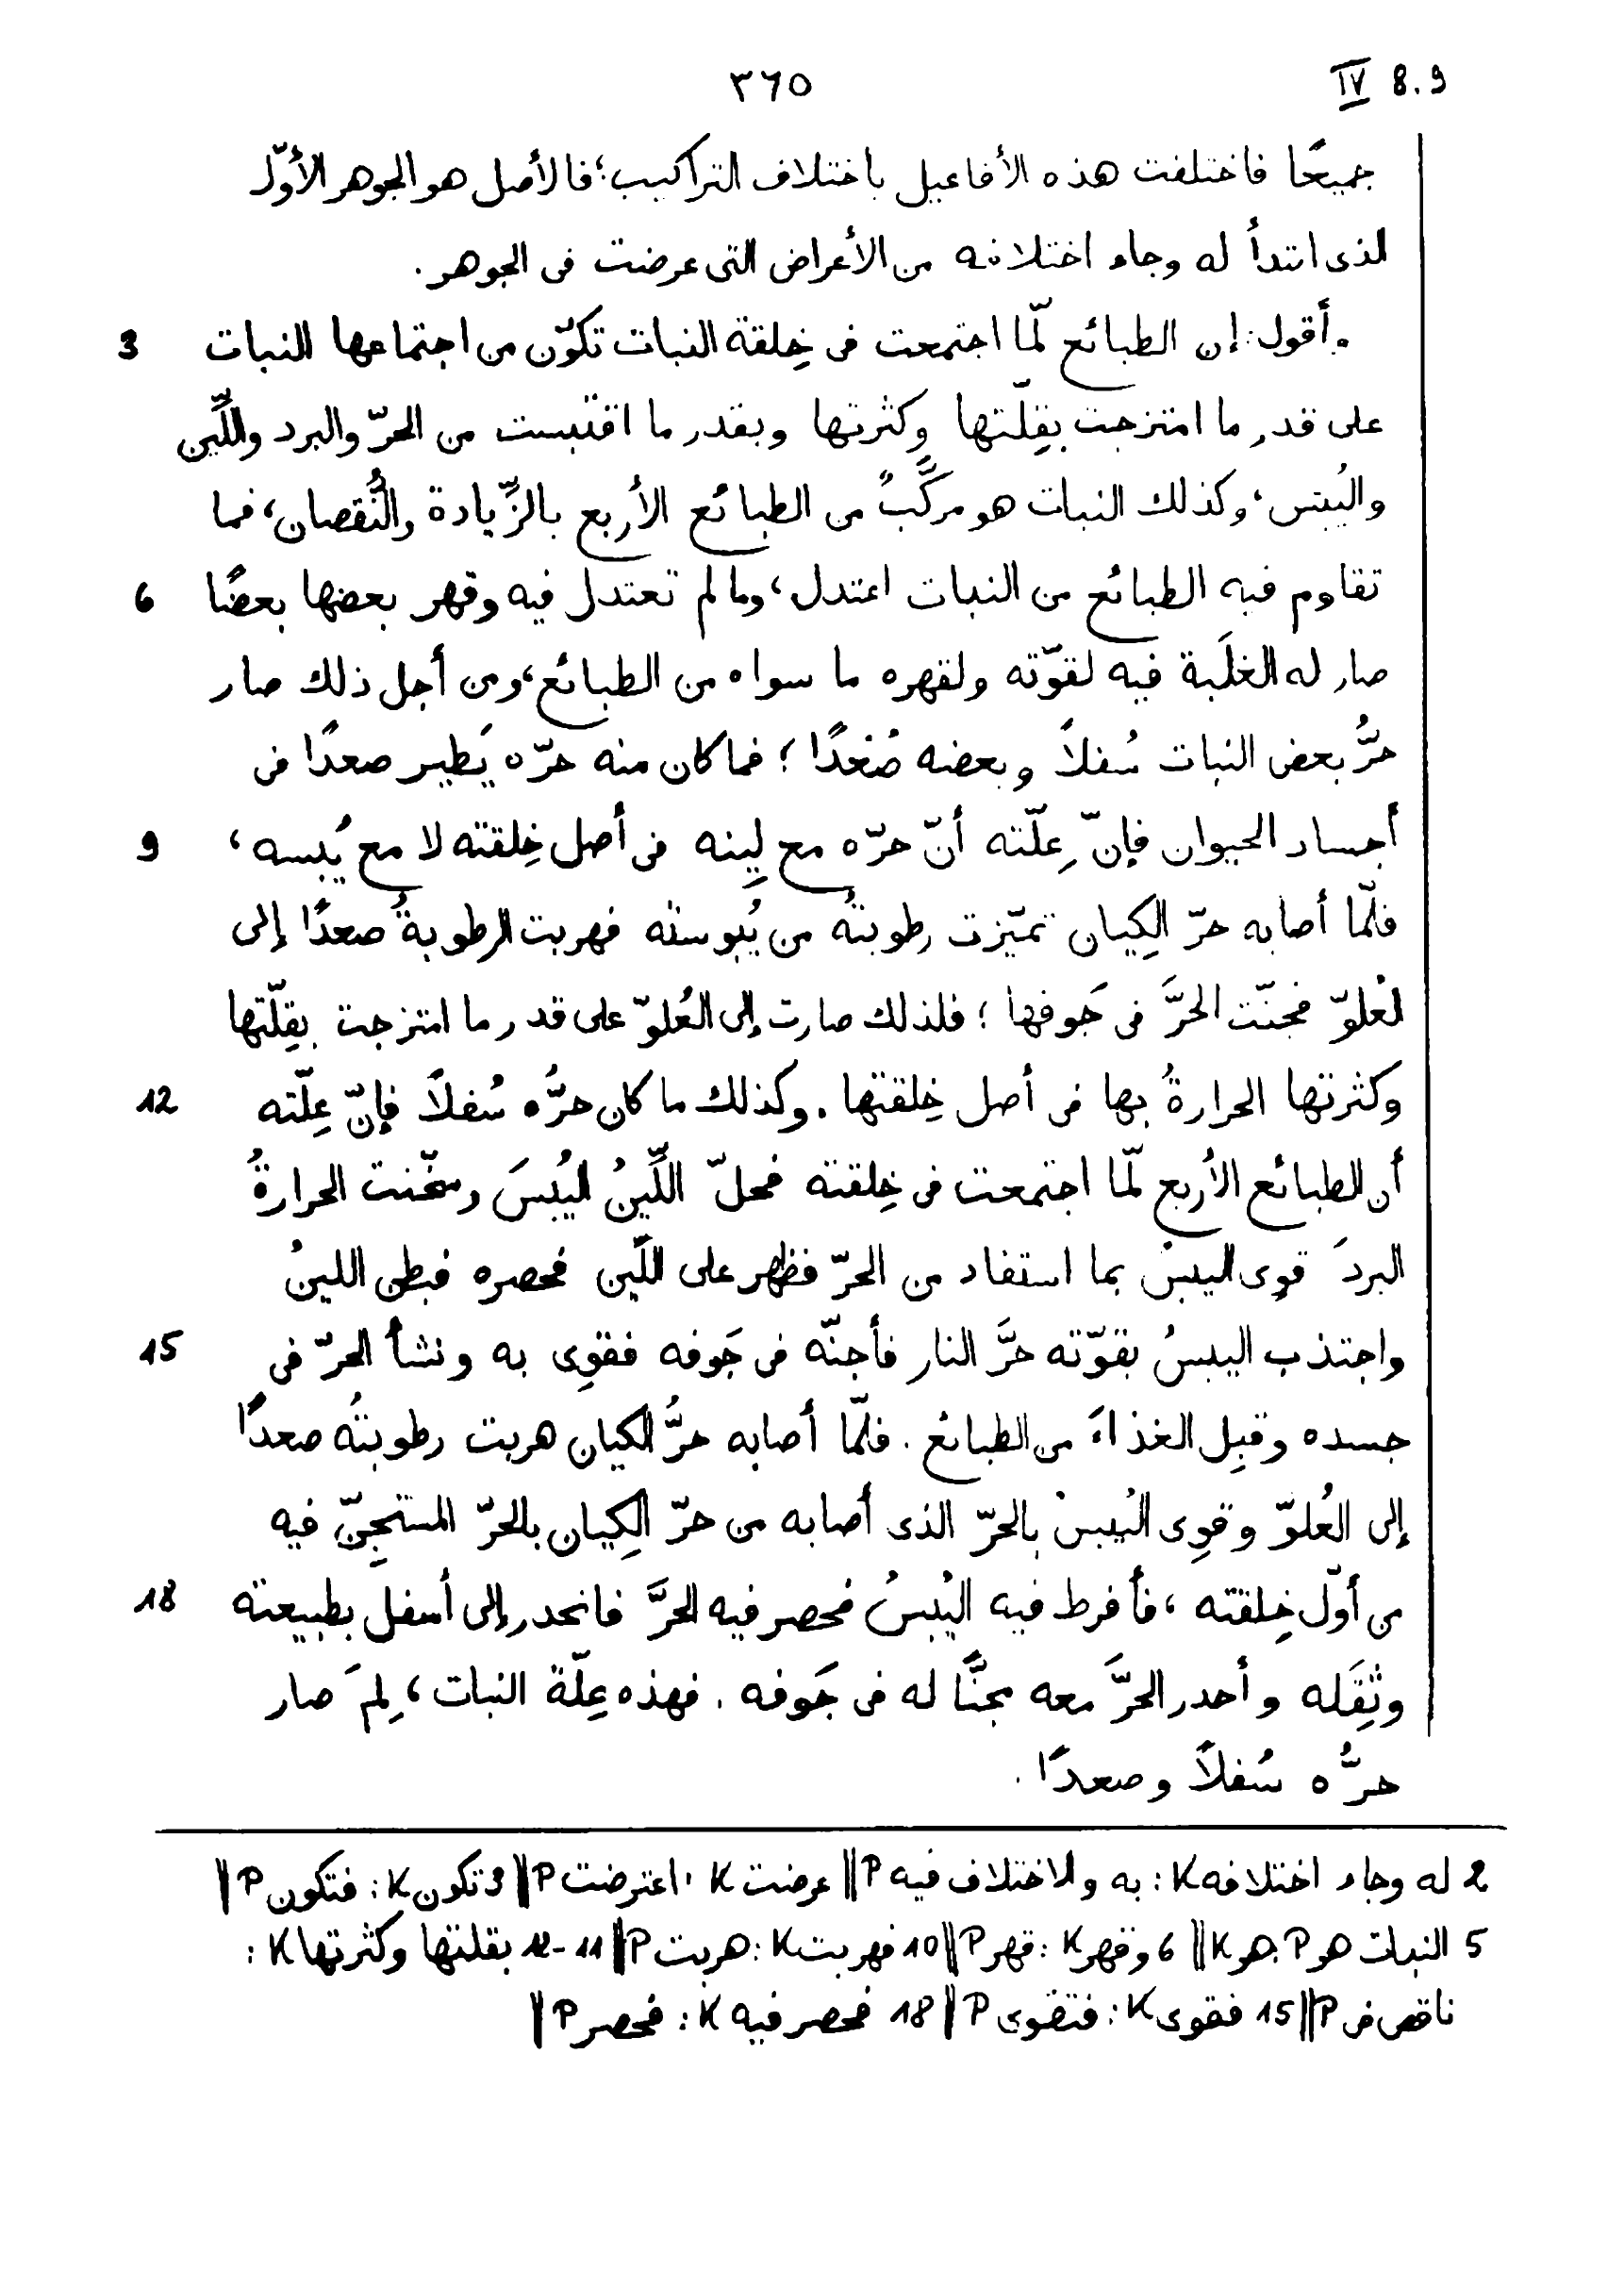 ٣٦٥ IV 8.9
جميعًا فاختلفت هذه الأفاعيل باختلاف التراكيب؛ فالأصل هو الجوهر الأوّل
الذى ابتدأ له وجاء اختلافه من الأعراض التى عرضت فى الجوهر.
وأقول: إن الطبائع لمّا اجتمعت فى خِلقة النبات تكوّن من اجتماعها النبات 3
على قدر ما امتزجت بقِلّتها وكثرتها وبقدر ما اقتبست من الحرّ والبرد واللِّين
واليُبس، وكذلك النبات هو مركَّبٌ من الطبائع الأربع بالزّيادة والنُّقصان، فما
تقاوم فيه الطبائع من النبات اعتدل، وما لم تعتدل فيه وقهر بعضها بعضًا 6
صار له الغلَبة فيه لقوّته ولقهره ما سواه من الطبائع، ومن أجل ذلك صار
حرُّ بعض النبات سُفلاً وبعضه صُعْدًا؛ فما كان منه حرّه يَطير صعدًا فى
أجساد الحيوان فإنّ عِلّته أنّ حرّه مع لِينه فى أصل خِلقته لا مع يُبسه، 9
فلمّا أصابه حرّ الكِيان تميّزت رطوبتُه من يُبوسته فهربت الرطوبةُ صعدًا إلى
العُلوّ فجنّت الحرَّ فى جَوفها؛ فلذلك صارت إلى العُلوّ على قدر ما امتزجت بقِلّتها
وكثرتها الحرارةُ بها فى أصل خِلقتها. وكذلك ما كان حرُّه سُفلاً فإنّ عِلّته 12
أن الطبائع الأربع لمّا اجتمعت فى خِلقته فحلّ اللِّينُ اليُبسَ وسخّنت الحرارةُ
البردَ قوِى اليبسُ بما استفاد من الحرّ فظهر على اللّين فحصره فبطن اللينُ
واجتذب اليبسُ بقوّته حرَّ النار فأجنّه فى جَوفه فقوِى به ونشأ الحرّ فى 15
جسده وقبِل الغذاءَ من الطبائع. فلمّا أصابه حرُّ الكيان هربت رطوبتُه صعدًا
إلى العُلوّ وقوِى اليُبسُ بالحرّ الذى أصابه من حرّ الكِيان بالحرّ المستجِنّ فيه
من أوّل خِلقته، فأفرط فيه اليُبسُ فحصر فيه الحرَّ فانحدر إلى أسفل بطبيعته 18
وثِقَله وأحدر الحرَّ معه مجنًّا له فى جَوفه. فهذه عِلّة النبات، لِمَ صار
حرُّه سُفلاً وصعدًا.
2 له وجاء اختلافه K: به والاختلاف فيه P || عرضت K، اعترضت P || 3 تكون K: فتكون P ||
5 النبات هو P: هو K || 6 وقهر K: قهر P || 10 فهربت K: هربت P || 11-12 بقلتها وكثرتها K:
ناقص فى P || 15 فقوى K: فتقوى P || 18 فحصر فيه K: فحصر P ||